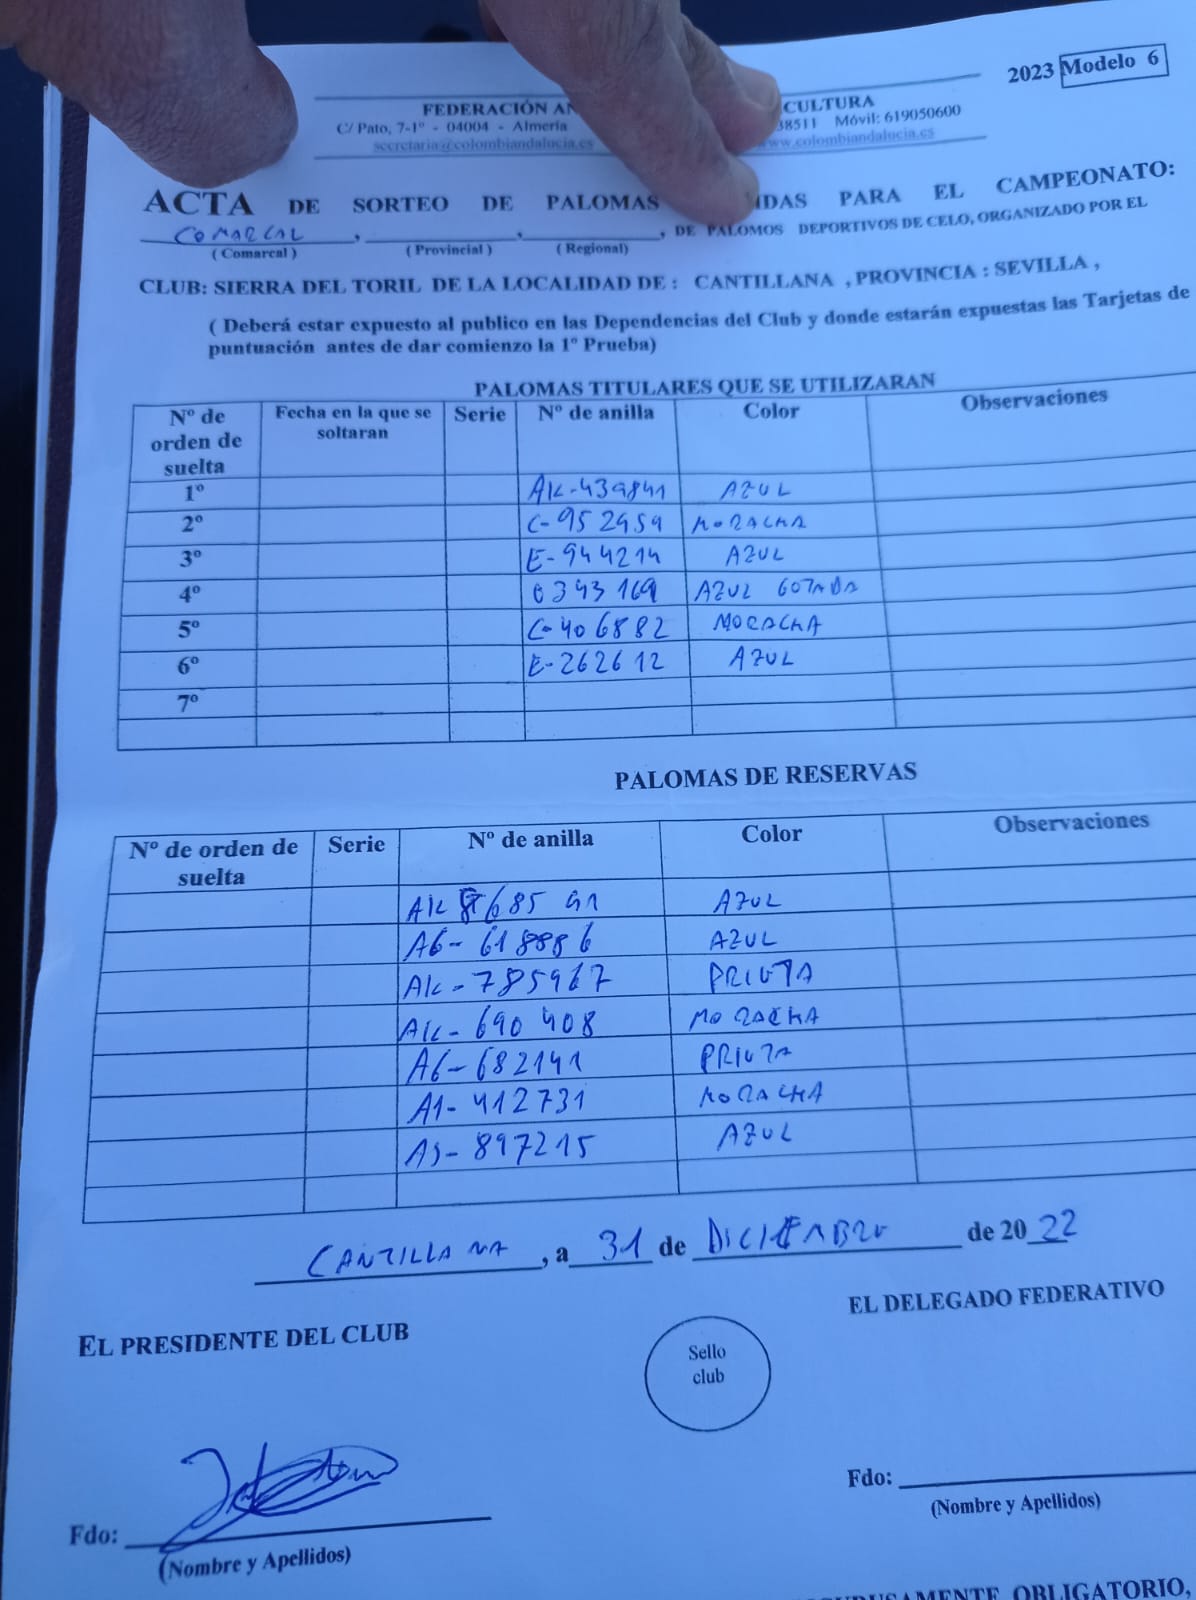 2023 Modelo 6
FEDERACIÓN AN CULTURA
C/ Pato, 7-1º - 04004 - Almería 38511 Móvil: 619050600
secretaria@colombiandalucia.es www.colombiandalucia.es
ACTA DE SORTEO DE PALOMAS IDAS PARA EL CAMPEONATO:
COMARCAL, , , DE PALOMOS DEPORTIVOS DE CELO, ORGANIZADO POR EL
( Comarcal ) ( Provincial ) ( Regional)
CLUB: SIERRA DEL TORIL DE LA LOCALIDAD DE : CANTILLANA , PROVINCIA : SEVILLA ,
( Deberá estar expuesto al publico en las Dependencias del Club y donde estarán expuestas las Tarjetas de
puntuación antes de dar comienzo la 1º Prueba)
PALOMAS TITULARES QUE SE UTILIZARAN
Nº de orden de suelta Fecha en la que se soltaran Serie Nº de anilla Color Observaciones
1º AK-439841 AZUL
2º C-952959 MORACHA
3º E-944214 AZUL
4º 0343169 AZUL GOTADA
5º C-406882 MORACHA
6º E-262612 AZUL
7º
PALOMAS DE RESERVAS
Nº de orden de suelta Serie Nº de anilla Color Observaciones
AK 68591 AZUL
A6-618886 AZUL
AK-785967 PRIETA
AK-690408 MORACHA
A6-682141 PRIETA
A1-412731 MORACHA
AS-897215 AZUL
CANTILLANA, a 31 de DICIEMBRE de 2022
EL PRESIDENTE DEL CLUB
EL DELEGADO FEDERATIVO
Sello
club
Fdo:
(Nombre y Apellidos)
Fdo:
(Nombre y Apellidos)
OBLIGATORIO,